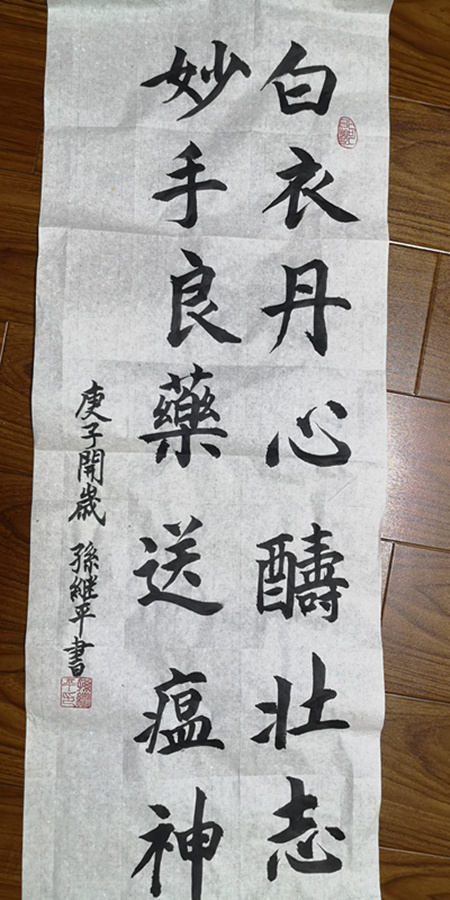 白衣丹心醻壯志
妙手良藥送瘟神
庚子開歲 孫继平書